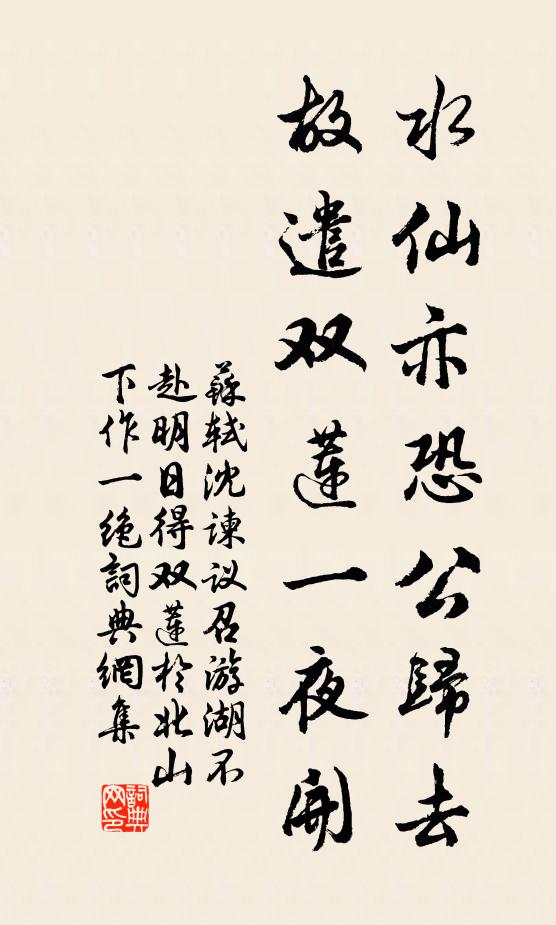 水仙亦恐公歸去
故遣双蓮一夜開
蘇軾沈諫议召游湖不
赴明日得双蓮於北山
下作一绝詞典網集
詞典
网印